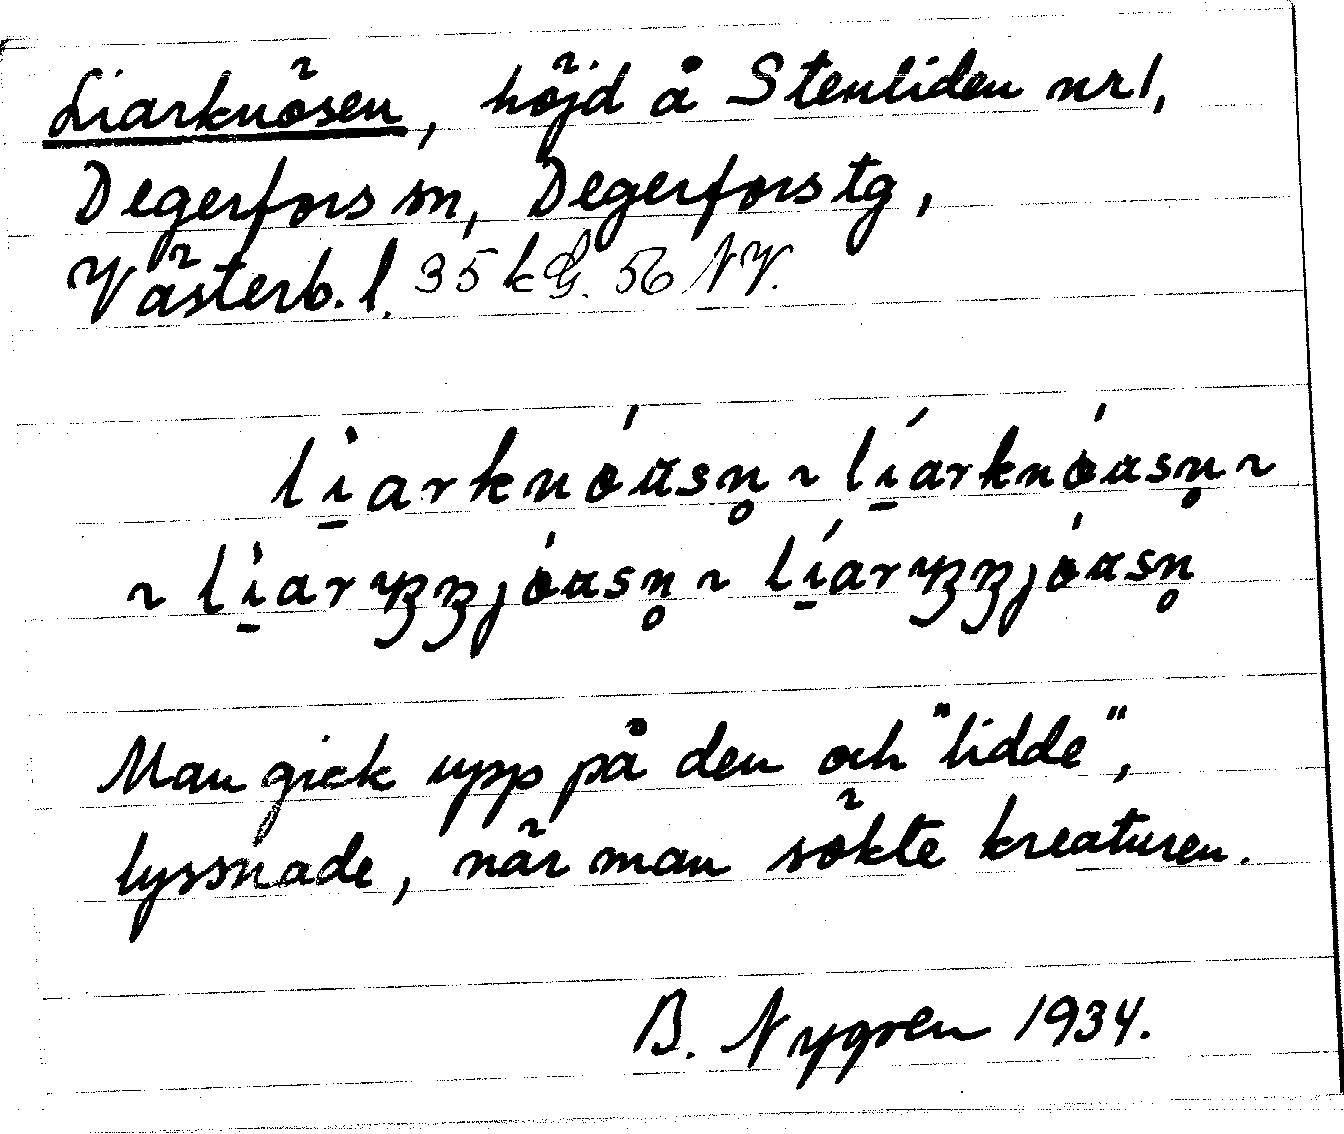 Liarknösen, höjd å Stenliden nr 1,
Degerfors sn, Degerfors tg,
Västerb. l. 35 kG. 56 NV.
lì̱arknóɑsn̥ ~ lí̱arknóɑsn̥ ~
~ lì̱arŋʒʒjóɑsn̥ ~ lí̱arŋʒʒjóɑsn̥
Man gick upp på den och "lidde",
lyssnade, när man sökte kreaturen.
B. Nygren 1934.